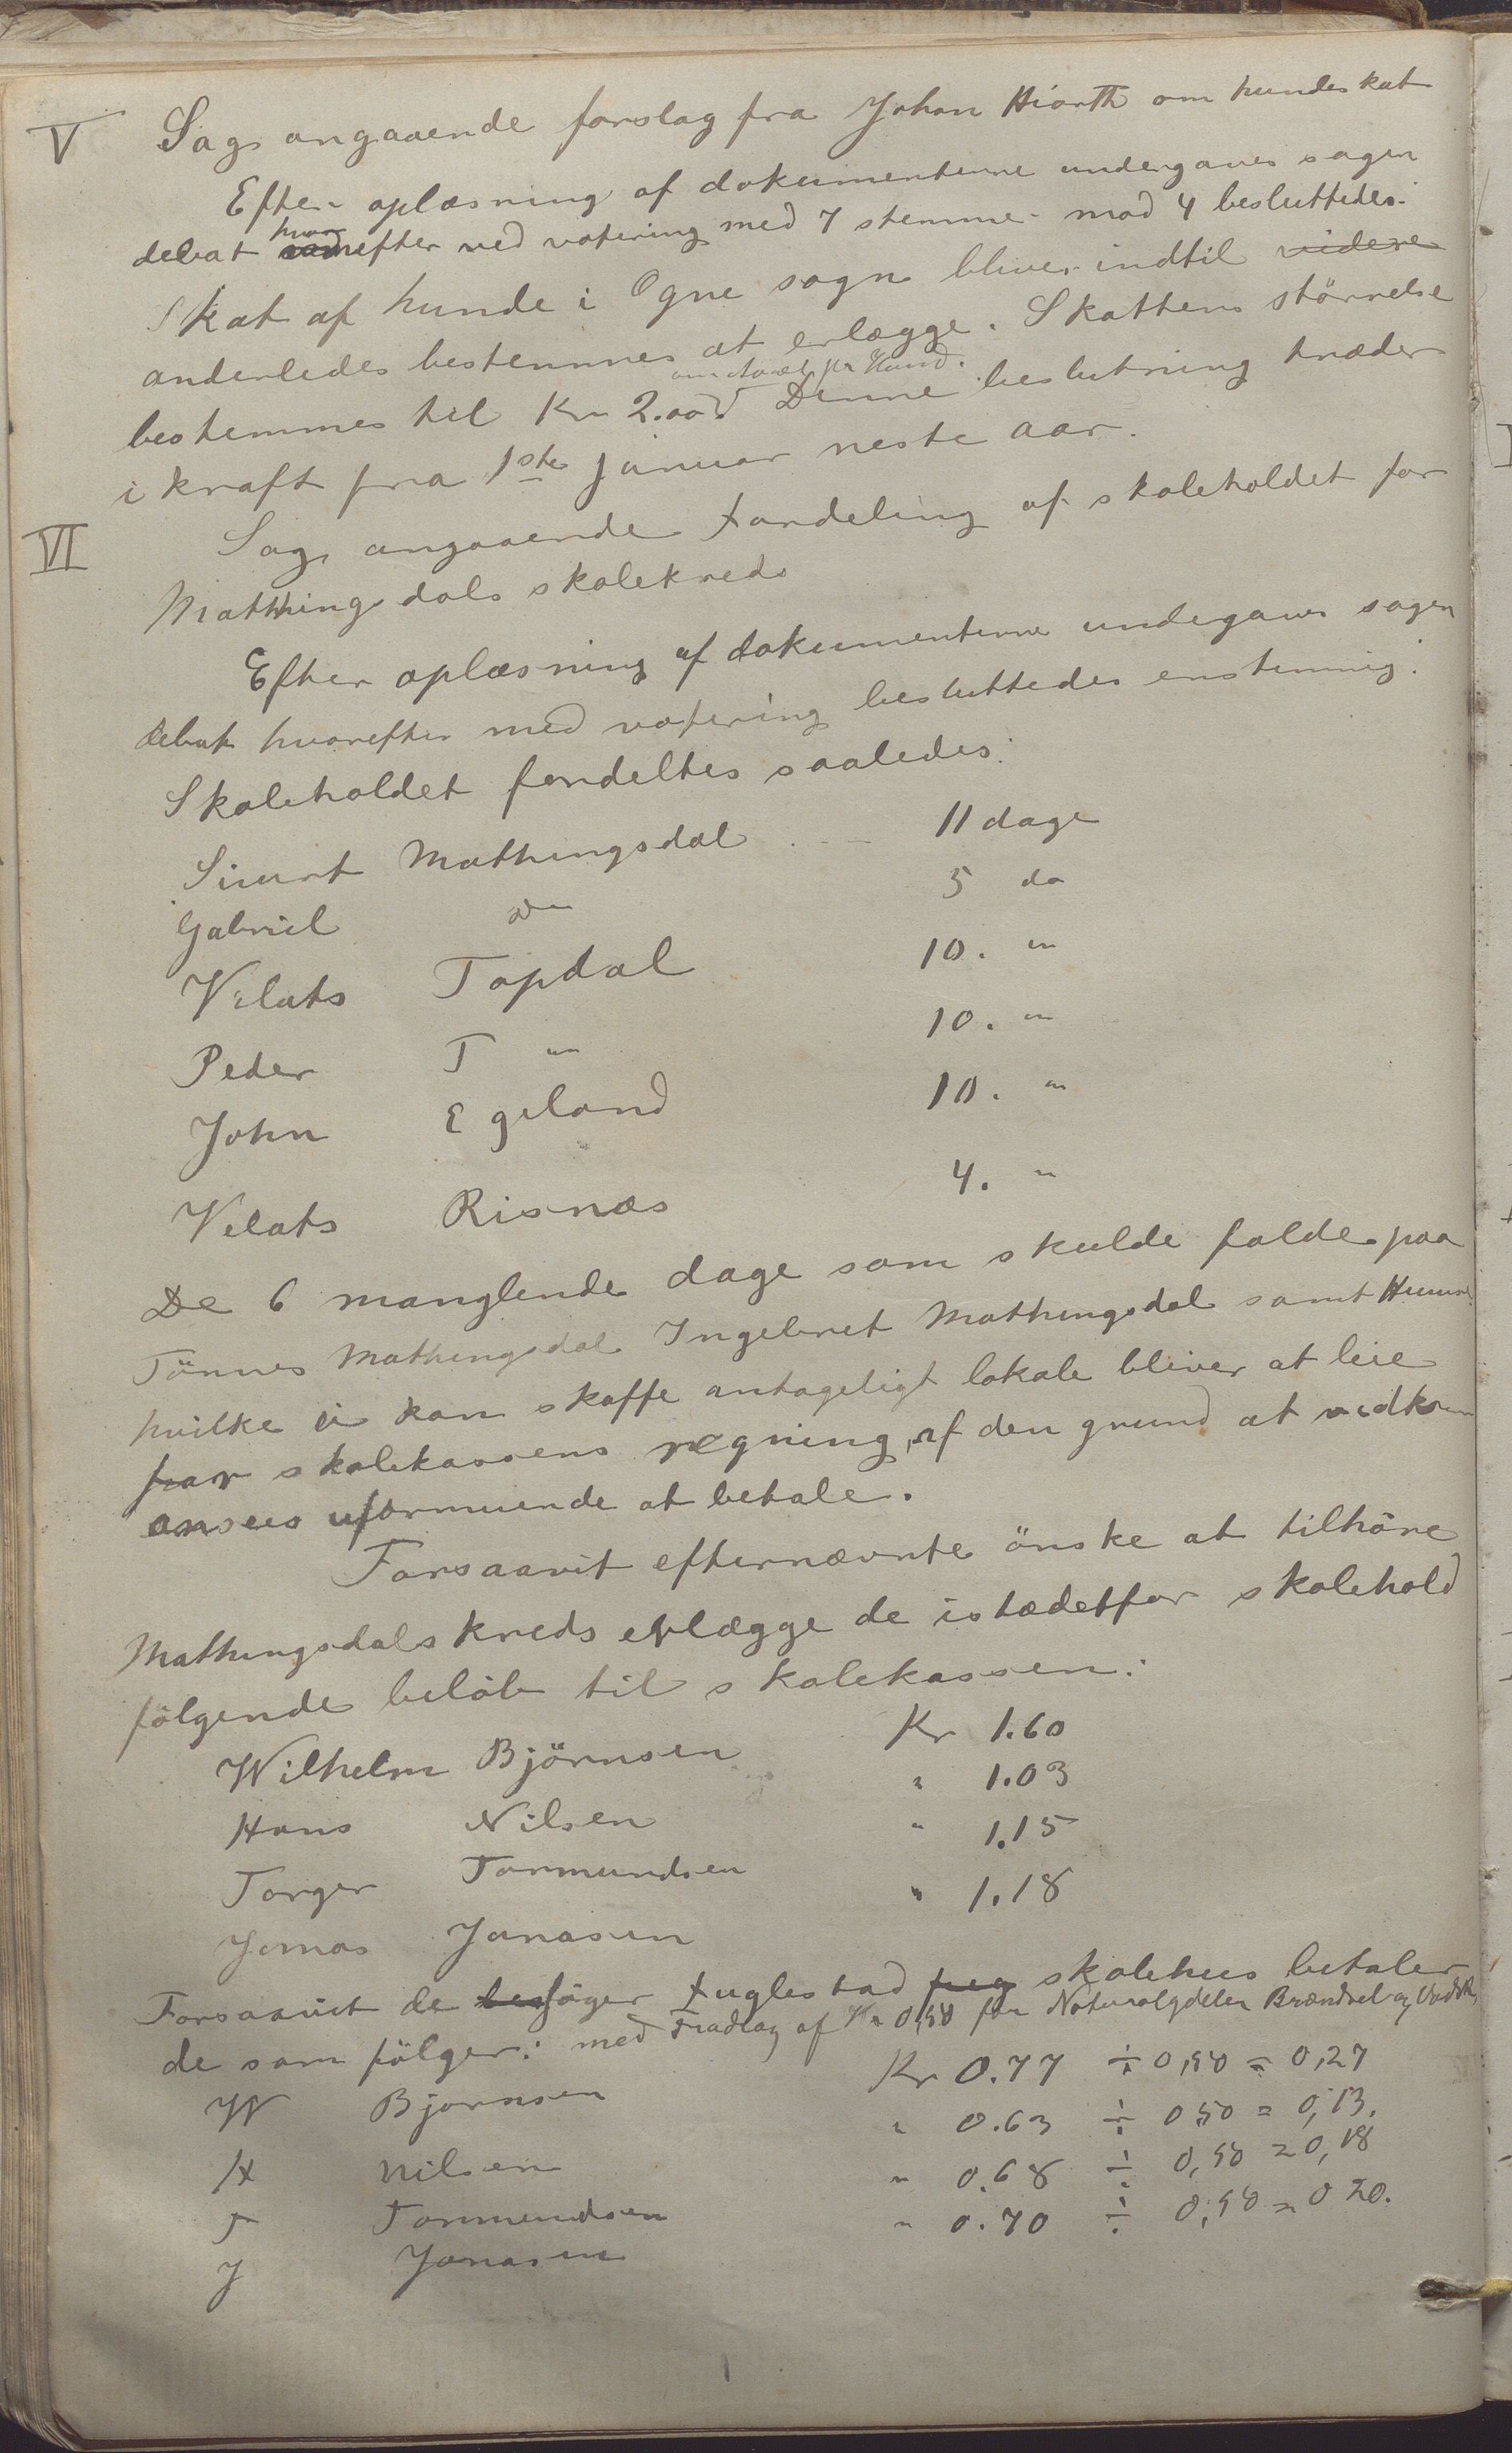 V Sag angaaende forslag fra Johan Hiorth om hundeskat
Efter oplæsning af dokumenterne undergaves sagen
debat hvorefter ved votering med 7 stemmer mod 4 besluttedes:
Skat af hunde i Ogne sogn bliver indtil videre
anderledes bestemmes at erlægge. Skattens störrelse
om Aaret pr Hund.
bestemmes til Kr 2.00. Denne beslutning træder
i kraft fra 1ste januar neste aar.
VI Sag angaaende fordeling af skoleholdet for
Mathingsdals skolekreds
Efter oplæsning af dokumenterne undergaves sagen
debat hvorefter med votering besluttedes enstemig:
Skoleholdet fordeltes saaledes:
Sivert Mathingsdal . . . 11 dage
Gabriel do 5 do
Vilats Topdal 10. "
Peder T " 10. "
John Egeland 10. "
Velats Risnæs 4. "
De 6 manglende dage som skulde falde paa
Tönnes Mathingsdal Ingebret Mathingsdal samt
hvilke ei kan skaffe antageligt lokale bliver at leie
for skolekassens regning, af den grund at vedkom
ansees uformuende at betale.
Forsaavit efternævnte önske at tilhöre
Mathingsdals kreds erlægge de istædetfor skolehold
fölgende belöb til skolekassen:
Wilhelm Björnsen Kr 1.60
Hans Nilsen " 1.03
Torger Tormundsen " 1.15
Jonas Jonasen " 1.18
Forsaavit de besöger Fuglestad skolehus betaler
de som fölger: med Fradrag af Kr 0,50 for Naturalydelser Brændsel og
W Bjornsen Kr 0.77 ÷ 0,50 = 0,27
H Nilsen " 0.63 ÷ 0,50 = 0,13.
T Tormundsen " 0.68 ÷ 0,50 = 0,18
J Jonasen " 0.70 ÷ 0,50 = 0 20.